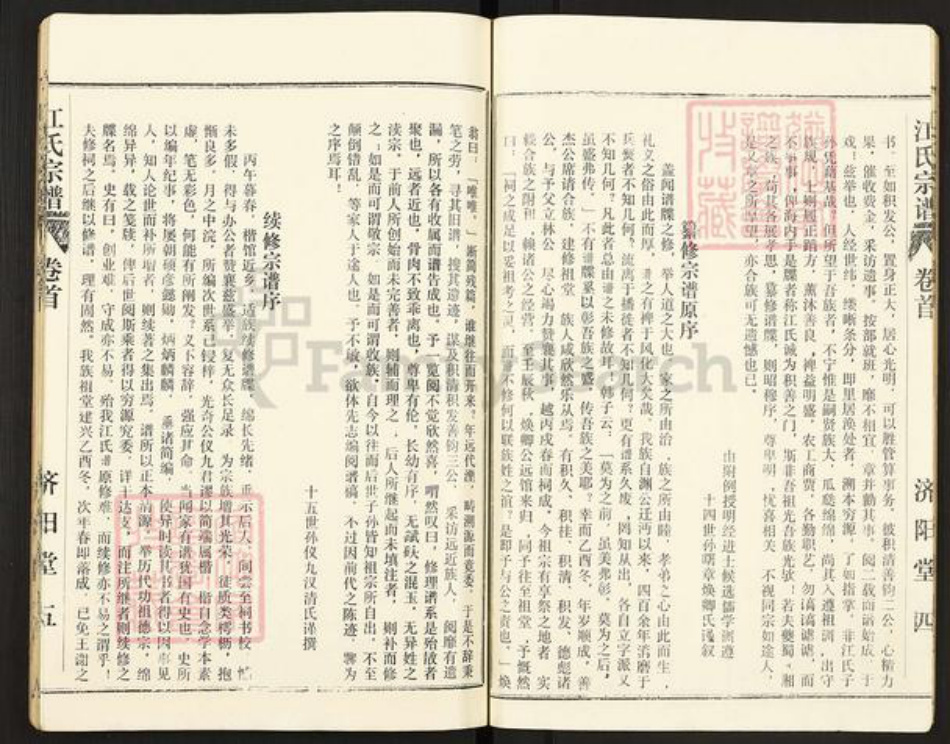 江氏宗谱
卷首
济阳堂
四
书，至如积发公，置身正大，居心光明，可以胜管算事务，彼积清善钧二公，心精力
果，催收费金，采访遗事，按部就班，靡不相宜，章并勤其事，阅二载而谱始成，于
戏：兹举也，人经世纬，缕晰条分，即里居涣处者，溯本穷源，了如指掌，非江氏子
外凭勋基哉？但所望于吾族者，不宁惟是嗣贤族大，瓜瓞绵绵，尚其入遵祖训，出守
族规，士则履正蹈方，薰沐善良，裨益明盛，农工商贾，各勤职艺，勿谲谲谑，而
不事事，俾海内手是牒者称江氏诚为积善之门，斯非吾祖光吾族光欤！若夫夔蜀、湘
之族，尚其各展孝思，纂修谱牒，则昭穆序，尊卑明，忧喜相关，不视同宗如途人，
是又章之所厚望，亦合族可无遗憾也已。
由附例授明经进士候选儒学训遵
十四世孙曙章焕卿氏谨叙
纂修宗谱原序
盖闻谱牒之修，举人道之大也，家之所由治，族之所由睦，孝弟之心由此而生，
礼义之俗由此而厚，之有裨于风化大矣哉，我族自渊公迁沔以来，四百余年湑磨于
兵燹者不知几何？流离于播徙者不知几何？更有谱系久废，罔知从出，各自立字派又
不知几何？凡此者总由谱之未修故耳，韩子云：“莫为之前，虽美弗彰，莫为之后，
虽盛弗传。”不有谱牒奚以彰吾族之盛，传吾族之美耶？幸而乙酉冬，年岁顺成，善
杰公席请合族，建修祖堂，族人咸欣然乐从焉，有积久、积挂、积清、积发、德彪诸
公，与予父立林公，尽心竭力赞襄其事，越丙戌春而祠成，今祖宗有享祭之地者，实
候合族之附积，赖诸公之经营，
曰：“祠之成足以妥祖考之灵，而谱不修何以联族姓之谊？是即予与公之责也。”焕
翁曰：“唯唯。”
笔之劳，寻其旧谱，搜其遗迹，谋及积清积发善钧三公，采访远近族人，阅靡有遗
漏，所以各有收属而谱告成也。予一览阅不觉欣然喜，喟然叹曰，修理谱系是殆液者
聚也，远者近也，骨肉不致乖离也，尊卑有伦，长幼有序，无珷玞之混玉，无异姓之
渎宗，于前人所创始而未完善者，则辅而理之，后人所继起而未填注者，则补而修
之；如是而可谓敬宗，如是而可谓收族，自今以往而后世子孙皆知祖宗所自出，不至
颠倒错乱，等家人于途人也，予不敏，欲体先志编阅谱稿，不过因前代之陈迹，聊为
之序焉耳！
十五世孙仪九汉清氏谨撰
续修宗谱序
丙午暮春，楷馆近乡，适族续修谱牒，绵长先绪，垂示后人，间尝至祠书校，
未多假，得与办公者赞襄兹盛举，复无众长足录，为宗族增其光荣，徒质类樗栎，抱
惭良多，月之中浣，所编次世系已锓梓，光奇公仪九君谬以简端属楷，楷自念学本素
虚，笔无彩色，何能有所阐发？义不容辞，强应其命，当闻家有谱犹国有史也，史所
以编年纪事，将屡朝硕彦懿勋，炳炳麟麟，垂诸简编，使异时读其书者得以因
人，知人论世而补所瑕者，则续著之集出焉，谱所以正本清源，举历代功祖德宗，绵
绵异异，载之笺牍，俾后世阅斯乘者得以穷源究委，详于达支，而注所继者则续修之
牒名焉，史有曰，创业难，守成亦不易，殆我江氏谱原修难，而续修亦不易之谓乎！
夫修祠之后继以修谱，理有固然，我族祖堂建兴乙酉冬，次年春即落成，已免王谢之
江氏宗谱
卷首
济阳堂
五
FamilySearch